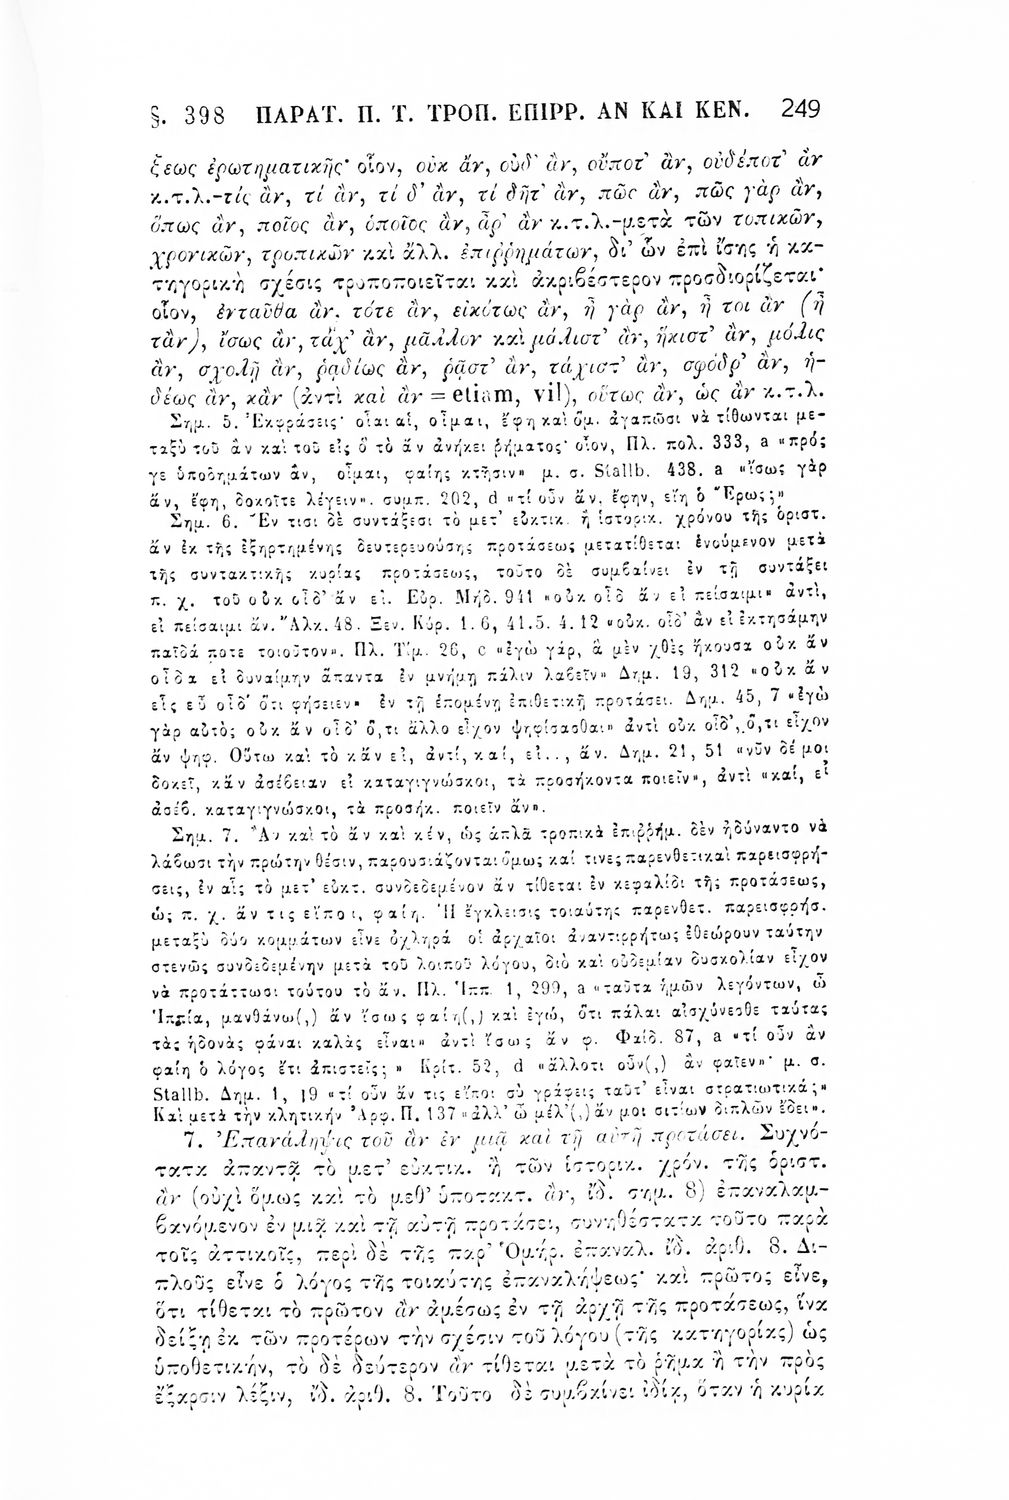 §. 398 ΠΑΡΑΤ. Π. Τ. ΤΡΟΠ. ΕΠΙΡΡ. ΑΝ ΚΑΙ ΚΕΝ. 249
ξεως ἐρωτηματικῆς· οἷον, οὐκ ἄν, οὐδ' ἄν, οὔποτ' ἄν, οὐδέποτ' ἄν
κ.τ.λ.-τίς ἄν, τί ἄν, τί δ' ἄν, τί δῆτ' ἄν, πῶς ἄν, πῶς γὰρ ἄν,
ὅπως ἄν, ποῖος ἄν, ὁποῖος ἄν, ἆρ' ἄν κ.τ.λ.-μετὰ τῶν τοπικῶν,
χρονικῶν, τροπικῶν καὶ ἄλλ. ἐπιῤῥημάτων, δι' ὧν ἐπὶ ἴσης ἡ κα-
τηγορικὴ σχέσις τροποποιεῖται καὶ ἀκριβέστερον προσδιορίζεται·
οἷον, ἐνταῦθα ἄν. τότε ἄν, εἰκότως ἄν, ἦ γὰρ ἄν, ἦ τοι ἄν (ἦ
τἄν), ἴσως ἄν, τάχ' ἄν, μᾶλλον καὶ μάλιστ' ἄν, ἥκιστ' ἄν, μόλις
ἄν, σχολῇ ἄν, ῥᾳδίως ἄν, ῥᾷστ' ἄν, τάχιστ' ἄν, σφόδρ' ἄν, ἡ-
δέως ἄν, κἄν (ἀντὶ καὶ ἄν = etiam, vil), οὕτως ἄν, ὡς ἄν κ.τ.λ.
Σημ. 5. Ἐκφράσεις· οἷαι αἱ, οἶμαι, ἔφη καὶ ὅμ. ἀγαπῶσι νὰ τίθωνται με-
ταξὺ τοῦ ἂν καὶ τοῦ εἰς ὃ τὸ ἄν ἀνήκει ῥήματος· οἷον, Πλ. πολ. 333, a «πρός
γε ὑποδημάτων ἄν, οἶμαι, φαίης κτῆσιν» μ. σ. Stallb. 438. a «ἴσως γὰρ
ἄν, ἔφη, δοκοῖτε λέγειν». συμπ. 202, d «τί οὖν ἄν. ἔφην, εἴη ὁ Ἔρως;»
Σημ. 6. Ἔν τισι δὲ συντάξεσι τὸ μετ' εὐκτικ. ἢ ἱστορικ. χρόνου τῆς ὁριστ.
ἄν ἐκ τῆς ἐξηρτημένης δευτερευούσης προτάσεως μετατίθεται ἑνούμενον μετὰ
τῆς συντακτικῆς κυρίας προτάσεως, τοῦτο δὲ συμβαίνει ἐν τῇ συντάξει
π. χ. τοῦ οὐκ οἶδ' ἄν εἰ. Εὐρ. Μήδ. 941 «οὐκ οἶδ ἄν εἰ πείσαιμι» ἀντὶ,
εἰ πείσαιμι ἄν. Ἄλκ. 48. Ξεν. Κύρ. 1. 6, 41. 5. 4. 12 «οὐκ. οἶδ' ἂν εἰ ἐκτησάμην
παῖδά ποτε τοιοῦτον». Πλ. Τίμ. 26, c «ἐγὼ γάρ, ἃ μὲν χθὲς ἤκουσα οὐκ ἄν
οἶδα εἰ δυναίμην ἅπαντα ἐν μνήμῃ πάλιν λαβεῖν» Δημ. 19, 312 «οὐκ ἄν
εἷς εὖ οἶδ' ὅτι φήσειεν» ἐν τῇ ἑπομένῃ ἐπιθετικῇ προτάσει. Δημ. 45, 7 «ἐγὼ
γὰρ αὐτὸς οὐκ ἄν οἶδ' ὅ,τι ἄλλο εἶχον ψηφίσασθαι» ἀντὶ οὐκ οἶδ', ὅ,τι εἶχον
ἄν ψηφ. Οὕτω καὶ τὸ κἄν εἰ, ἀντί, καί, εἰ.., ἄν. Δημ. 21, 51 «νῦν δέ μοι
δοκεῖ, κἄν ἀσέβειαν εἰ καταγιγνώσκοι, τὰ προσήκοντα ποιεῖν», ἀντὶ «καί, εἰ
ἀσέβ. καταγιγνώσκοι, τὰ προσήκ. ποιεῖν ἄν».
Σημ. 7. Ἂν καὶ τὸ ἄν καὶ κέν, ὡς ἁπλᾶ τροπικὰ ἐπιῤῥήμ. δὲν ἠδύναντο νὰ
λάβωσι τὴν πρώτην θέσιν, παρουσιάζονται ὅμως καί τινες παρενθετικαὶ παρεισφρή-
σεις, ἐν αἷς τὸ μετ' εὐκτ. συνδεδεμένον ἄν τίθεται ἐν κεφαλίδι τῆς προτάσεως,
ὡς π. χ. ἄν τις εἴποι, φαίη. Ἡ ἔγκλεισις τοιαύτης παρενθετ. παρεισφρήσ.
μεταξὺ δύο κομμάτων εἶνε ὀχληρά οἱ ἀρχαῖοι ἀναντιρρήτως ἐθεώρουν ταύτην
στενῶς συνδεδεμένην μετὰ τοῦ λοιποῦ λόγου, διὸ καὶ οὐδεμίαν δυσκολίαν εἶχον
νὰ προτάττωσι τούτου τὸ ἄν. Πλ. Ἱππ. 1, 299, a «ταῦτα ἡμῶν λεγόντων, ὦ
Ἱππία, μανθάνω(,) ἄν ἴσως φαίη(,) καὶ ἐγώ, ὅτι πάλαι αἰσχύνεσθε ταύτας
τὰς ἡδονὰς φάναι καλὰς εἶναι» ἀντὶ ἴσως ἄν φ. Φαίδ. 87, a «τί οὖν ἂν
φαίη ὁ λόγος ἔτι ἀπιστεῖς; » Κρίτ. 52, d «ἄλλοτι οὖν(,) ἄν φαῖεν»· μ. σ.
Stallb. Δημ. 1, 19 «τί οὖν ἄν τις εἴποι σὺ γράφεις ταῦτ' εἶναι στρατιωτικά;»
Καὶ μετὰ τὴν κλητικήν Ἀρφ. Π. 137 «ἀλλ' ὦ μέλ'(,) ἄν μοι σιτίων διπλῶν ἔδει».
7. Ἐπανάληψις τοῦ ἄν ἐν μιᾷ καὶ τῇ αὐτῇ προτάσει. Συχνό-
τατα ἀπαντᾷ τὸ μετ' εὐκτικ. ἢ τῶν ἱστορικ. χρόν. τῆς ὁριστ.
ἄν (οὐχὶ ὅμως καὶ τὸ μεθ' ὑποτακτ. ἄν, ἴδ. σημ. 8) ἐπαναλαμ-
βανόμενον ἐν μιᾷ καὶ τῇ αὐτῇ προτάσει, συνηθέστατα τοῦτο παρὰ
τοῖς ἀττικοῖς, περὶ δὲ τῆς παρ' Ὁμήρ. ἐπαναλ. ἴδ. ἀριθ. 8. Δι-
πλοῦς εἶνε ὁ λόγος τῆς τοιαύτης ἐπαναλήψεως· καὶ πρῶτος εἶνε,
ὅτι τίθεται τὸ πρῶτον ἄν ἀμέσως ἐν τῇ ἀρχῇ τῆς προτάσεως, ἵνα
δείξῃ ἐκ τῶν προτέρων τὴν σχέσιν τοῦ λόγου (τῆς κατηγορίας) ὡς
ὑποθετικήν, τὸ δὲ δεύτερον ἄν τίθεται μετὰ τὸ ῥῆμα ἢ τὴν πρὸς
ἔξαρσιν λέξιν, ἴδ. ἀριθ. 8. Τοῦτο δὲ συμβαίνει ἰδίᾳ, ὅταν ἡ κυρία